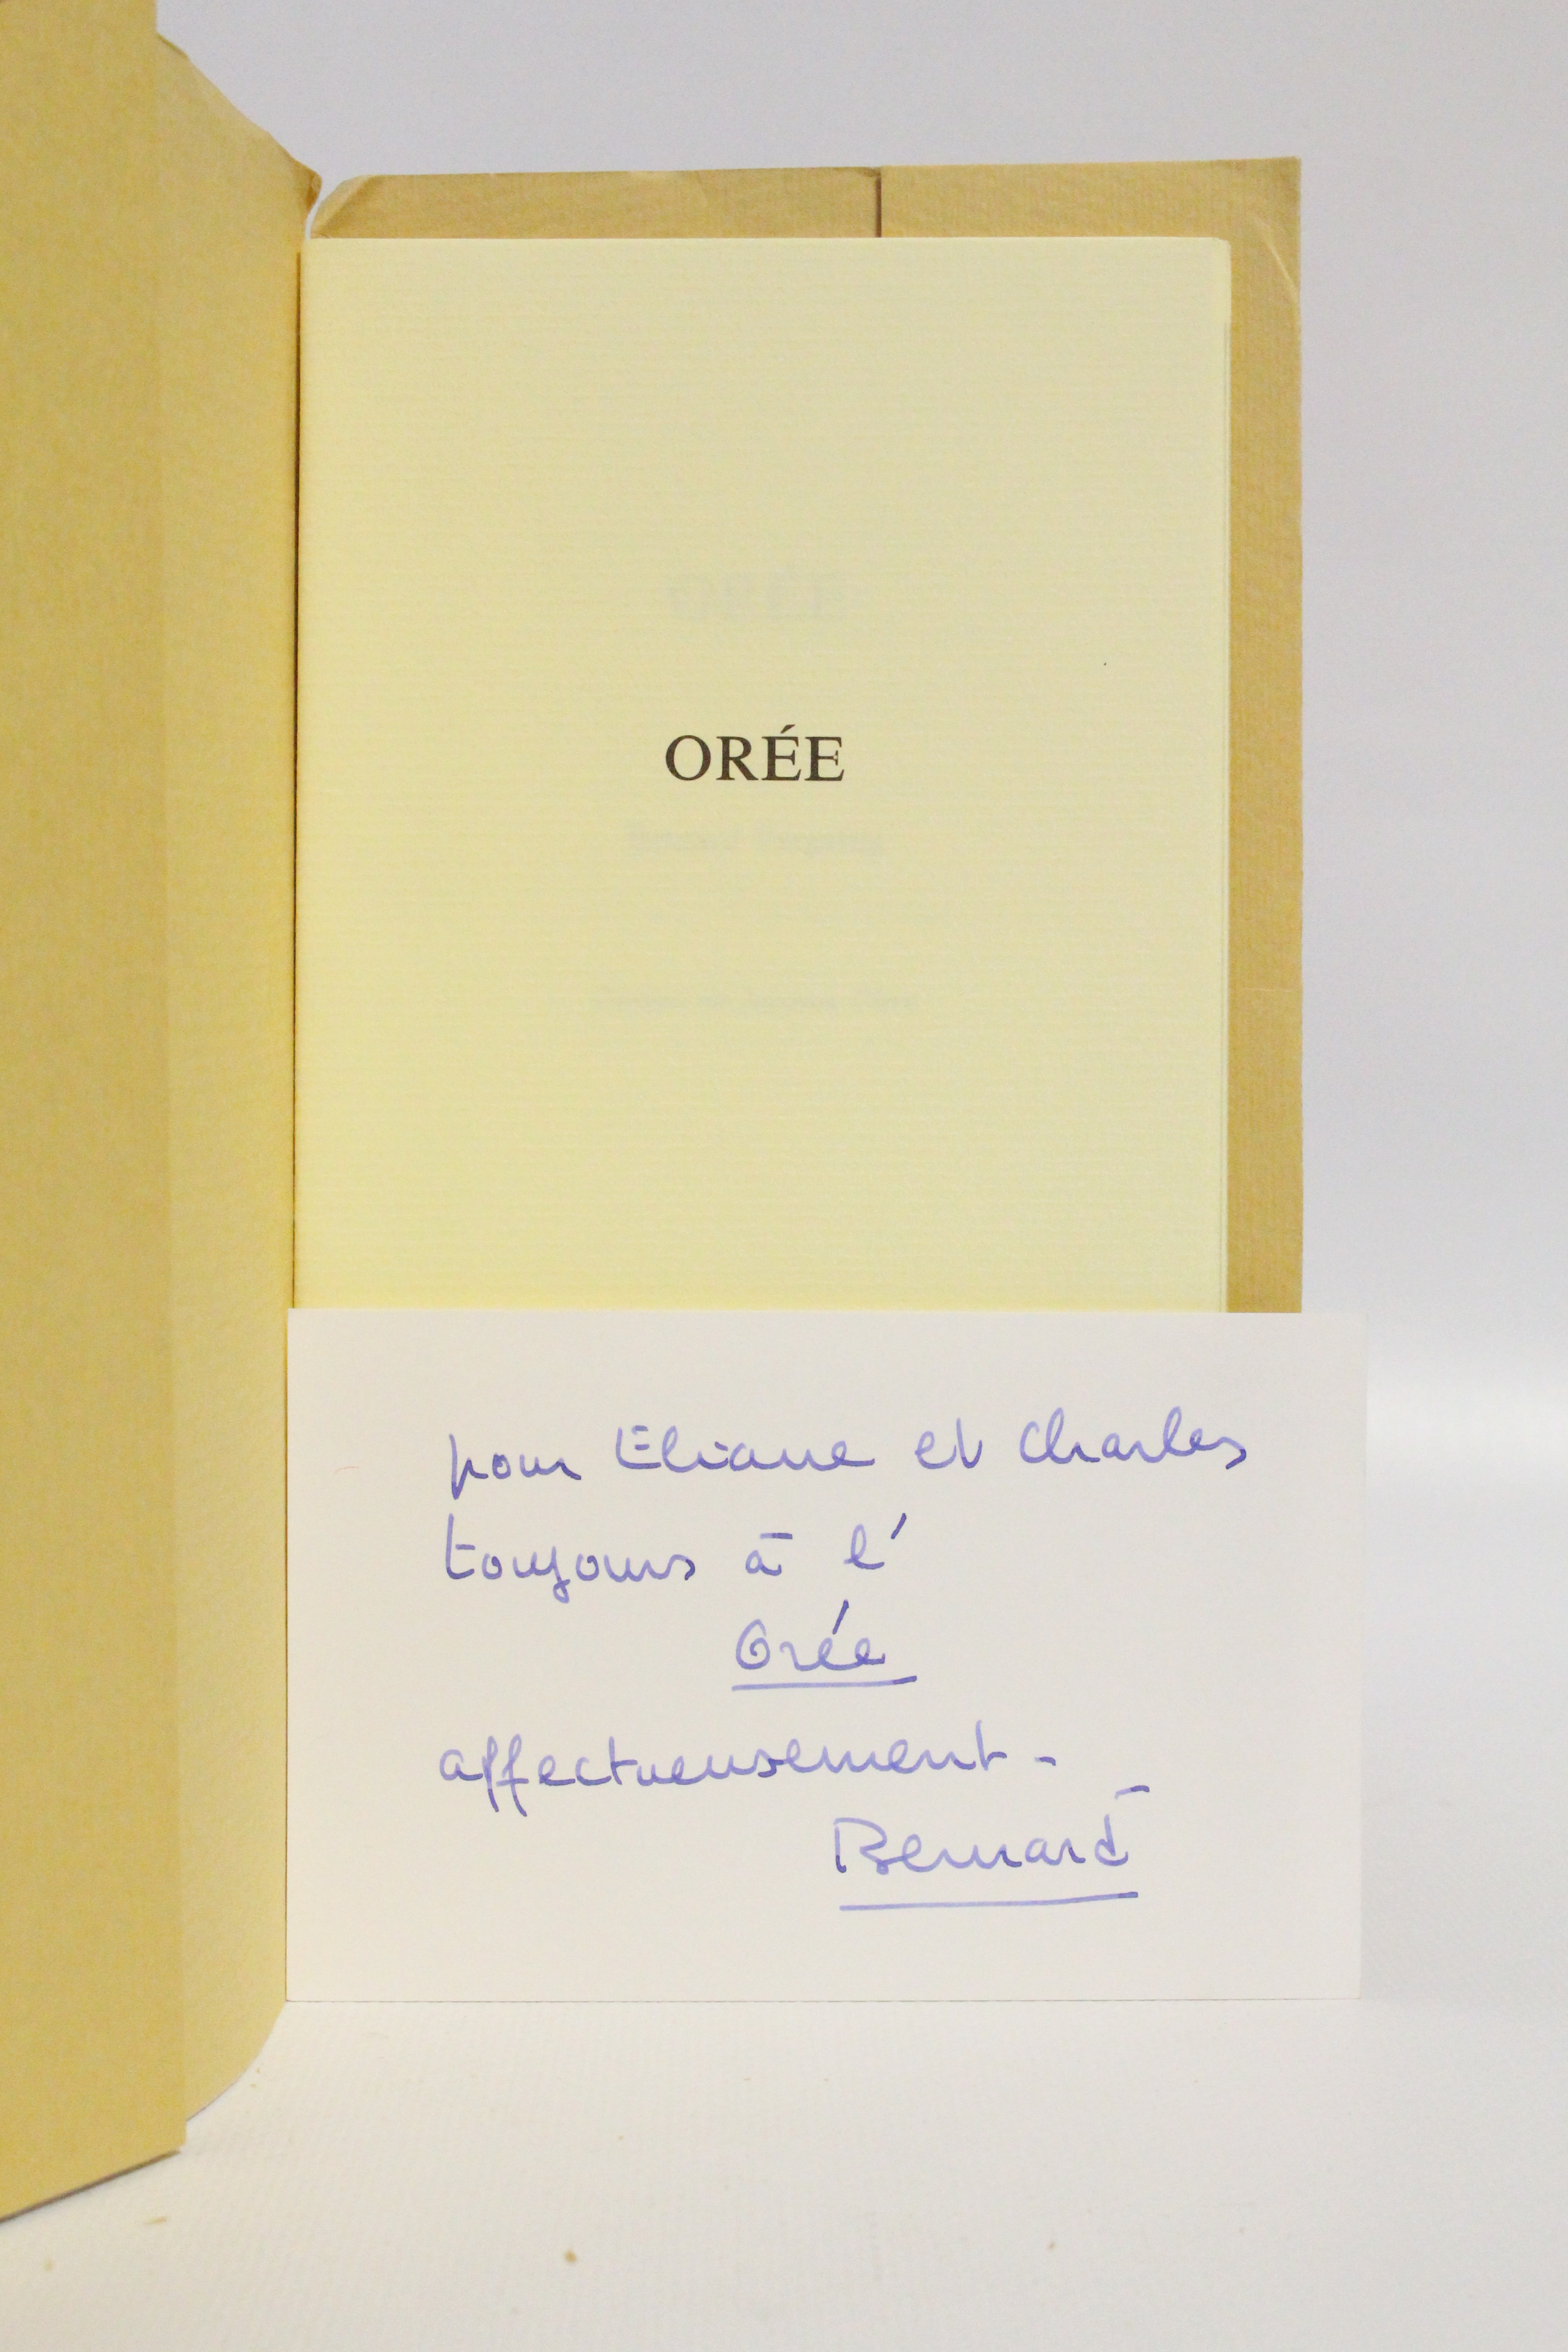 ORÉE
pour Eliane et Charles
toujours à l'
Orée
affectueusement -
Bernard